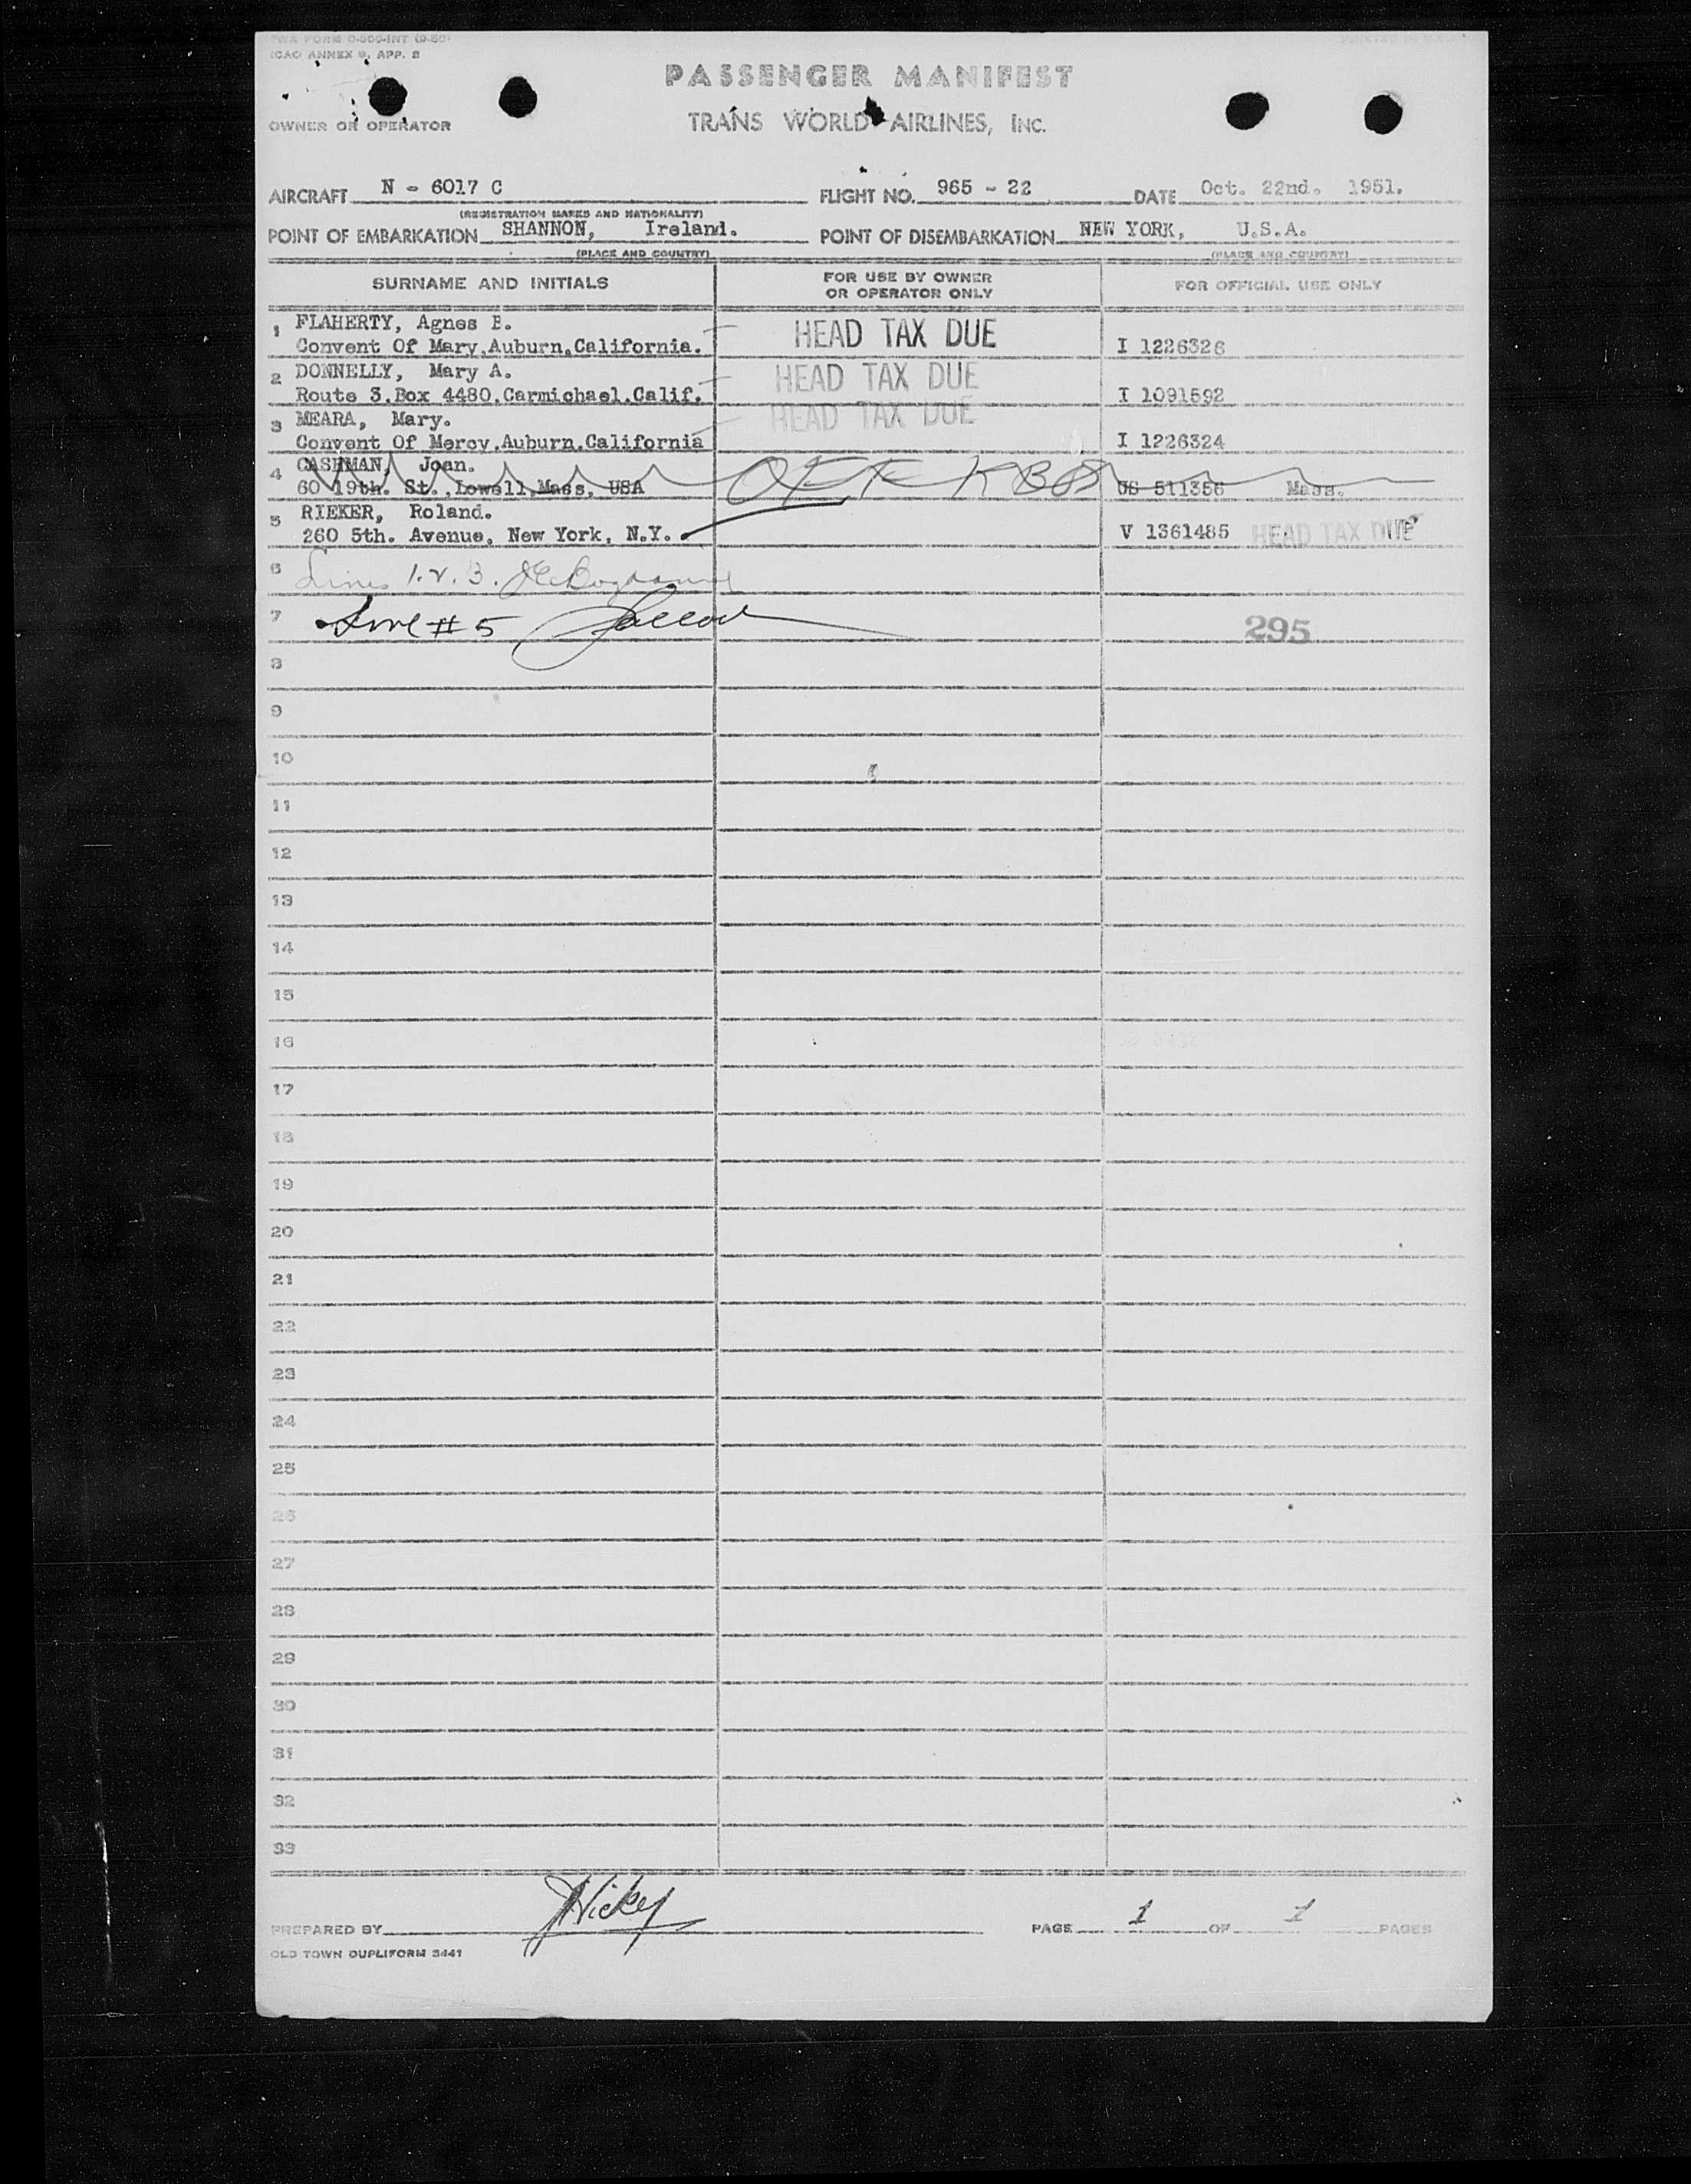 TWA FORM O-500-INT (9-50)
ICAO ANNEX 9, APP. 2
PASSENGER MANIFEST
OWNER OR OPERATOR
TRANS WORLD AIRLINES, INC.
AIRCRAFT N - 6017 C FLIGHT NO. 965 - 22 DATE Oct. 22nd. 1951.
(REGISTRATION MARKS AND NATIONALITY)
POINT OF EMBARKATION SHANNON, Ireland. POINT OF DISEMBARKATION NEW YORK, U.S.A.
(PLACE AND COUNTRY) (PLACE AND COUNTRY)
SURNAME AND INITIALS FOR USE BY OWNER OR OPERATOR ONLY FOR OFFICIAL USE ONLY
1 FLAHERTY, Agnes B. HEAD TAX DUE
Convent Of Mary,Auburn,California. I 1226326
2 DONNELLY, Mary A. HEAD TAX DUE
Route 3,Box 4480,Carmichael,Calif. I 1091592
3 MEARA, Mary. HEAD TAX DUE
Convent Of Mercy,Auburn,California I 1226324
4 CASHMAN, Joan.
60 19th. St.,Lowell,Mass, USA US 511356 Mass.
5 RIEKER, Roland.
260 5th. Avenue, New York, N.Y. V 1361485 HEAD TAX DUE
6 Lines 1. 2. 3.
7 Line # 5 295
8
9
10
11
12
13
14
15
16
17
18
19
20
21
22
23
24
25
26
27
28
29
30
31
32
33
PREPARED BY Hickey PAGE 1 OF 1 PAGES
OLD TOWN DUPLIFORM 3441